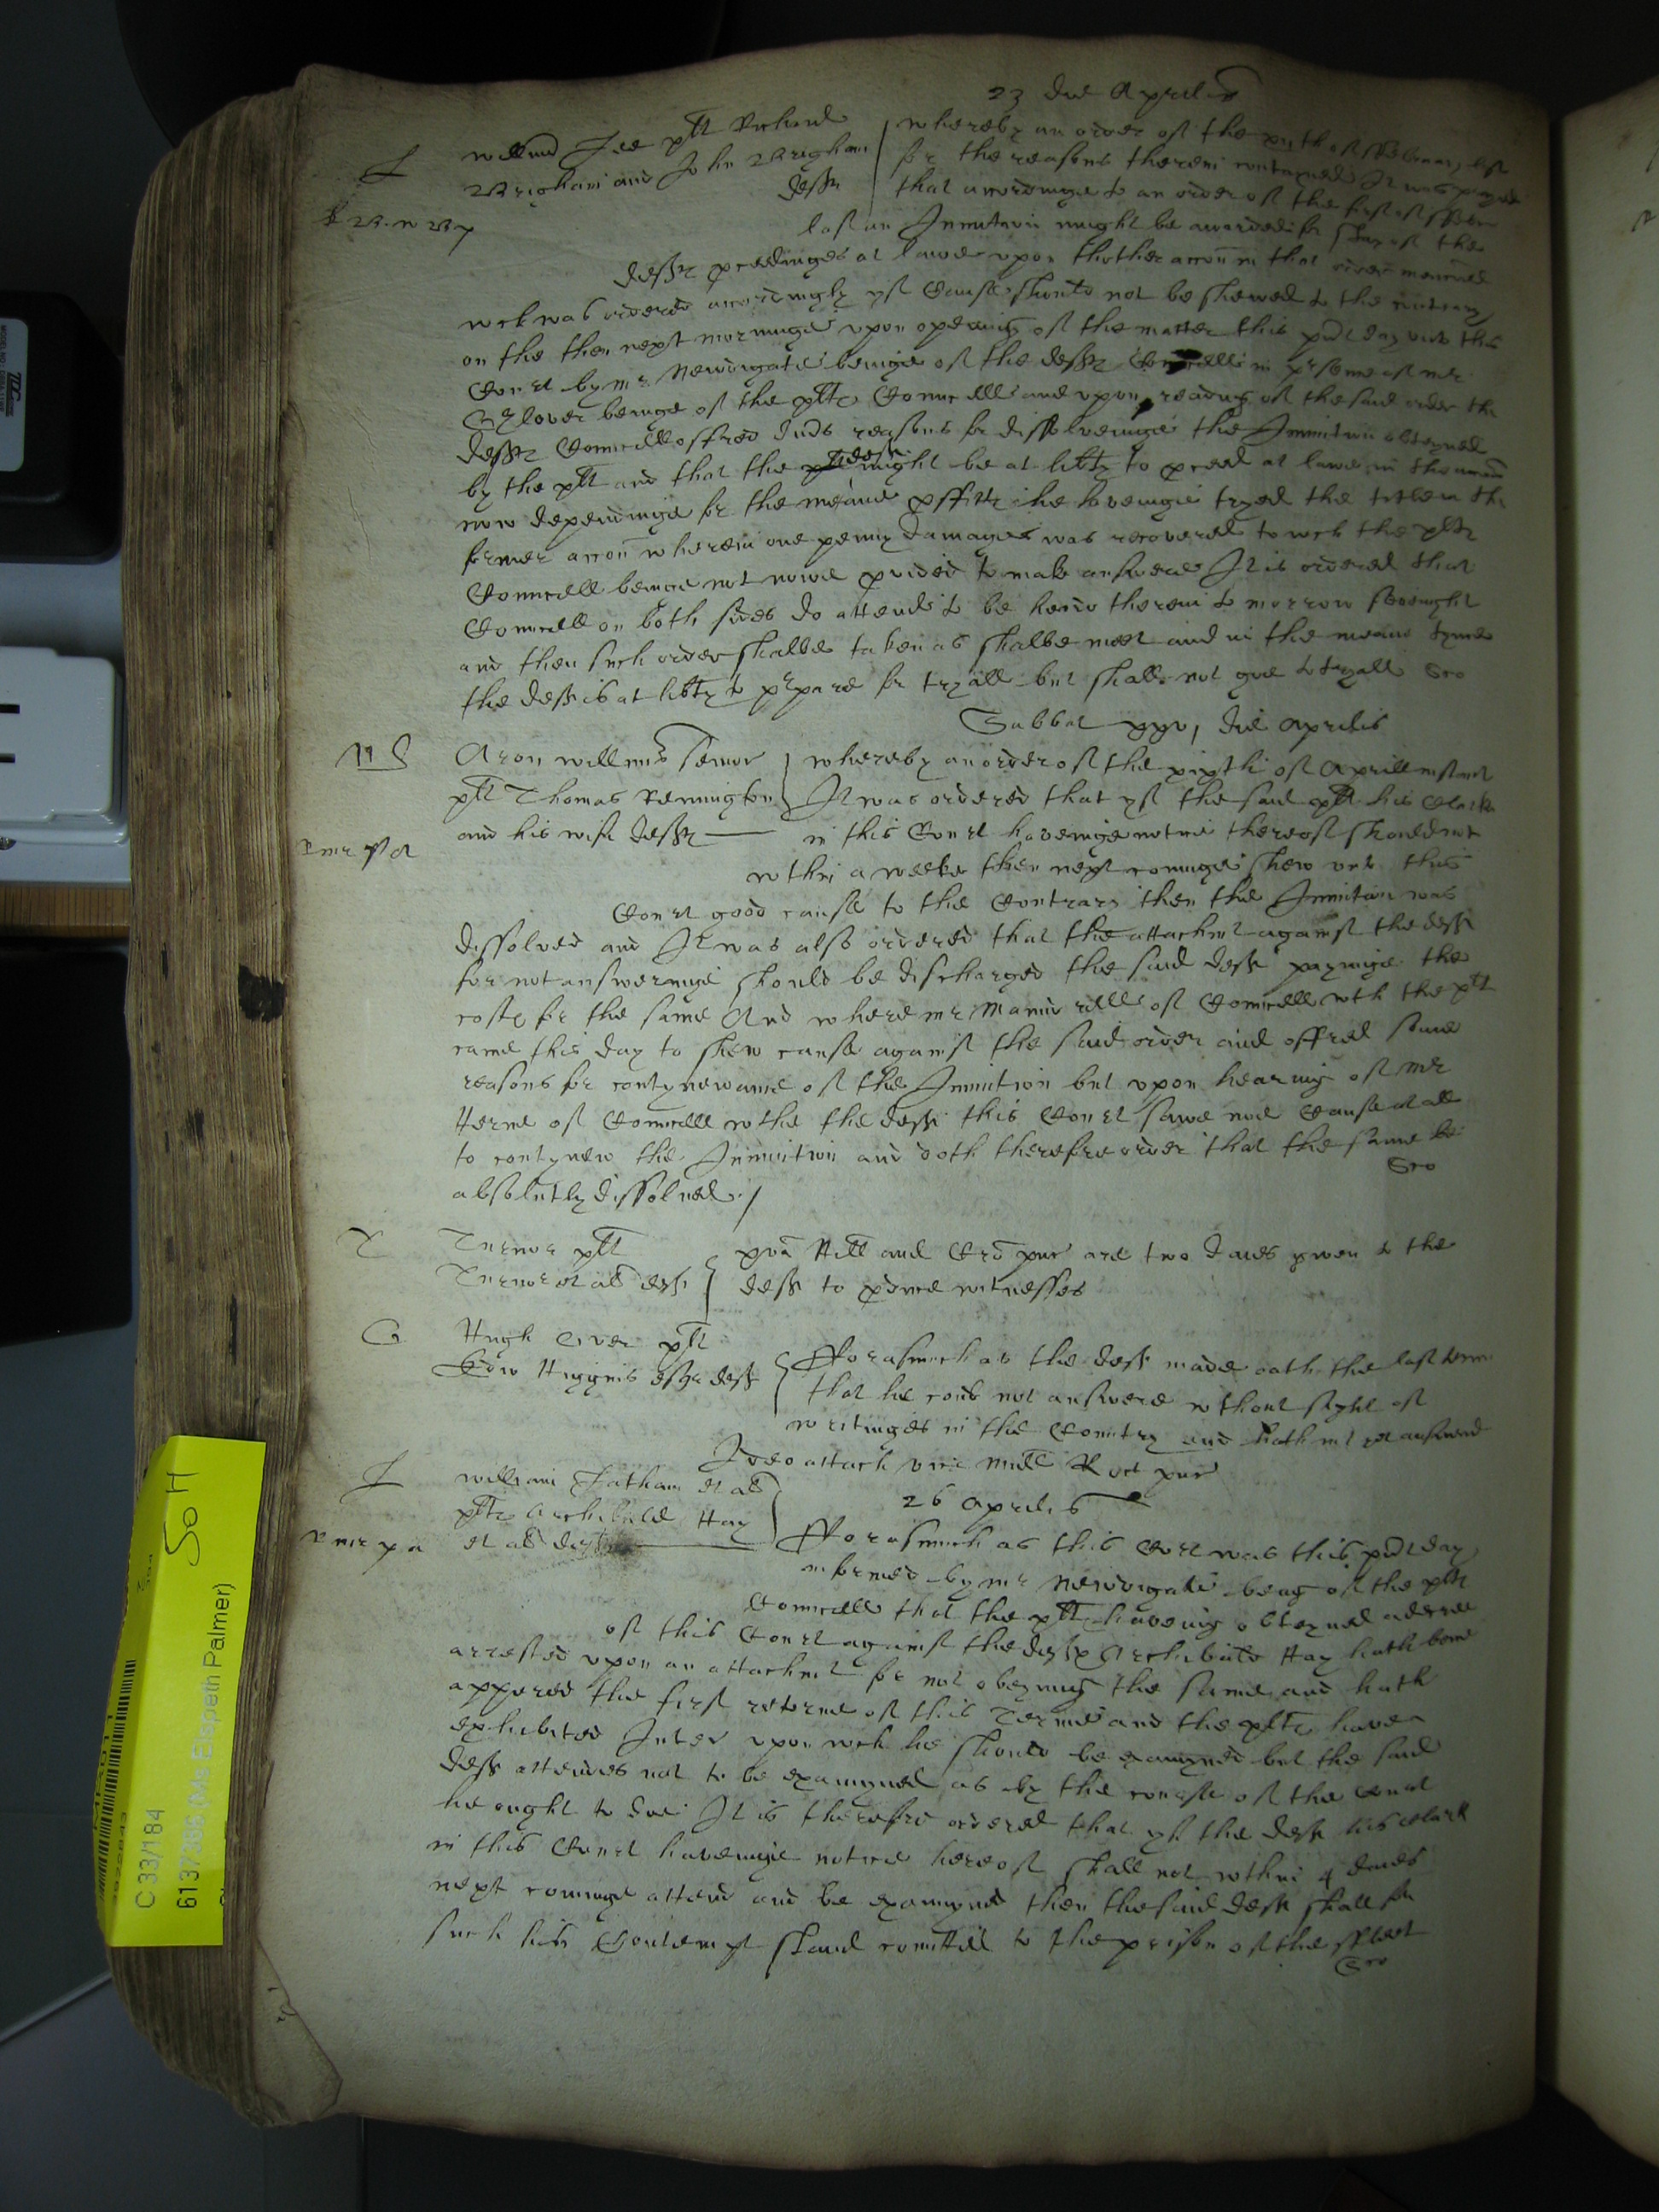 23 die Aprilis
J
willm̄ Jee plt Richard
Brigham and John Brigham
defts
B R. n By
whereby an order of the xiith of ffebruary last
for the reasons therein conteyned It was prayed
that accordinge to an order of the first of ffebr
last an Iniunction might be awarded for stay of the
defts pceedinges at lawe upon thother accōn in that order menconed
wch was ordered accordingly yf Cause should not be shewed to the contrary
on the then next morninge upon openinge of the matter this pñt day unto this
Court by mr Newdigate beinge of the defts Councell in prsence of mr
Glover beinge of the plts Councell and upon readinge of the said order the
defts Councell offred divs reasons for dissolveinge the Iniunction obteyned
by the plt and that the deft might be at libty to pceed at lawe in the accōn
now dependinge for the meane pffitts he haveinge tryed the title in the
former accōn wherein one penny damages was recovered to wch the plts
Councell beinge not nowe pvided to make answeare It is ordered that
Councell on both sides do attend to be heard therein to morrow sevenight
and then such order shalbe taken as shalbe meet and in the meane tyme
the deft is at libty to prpare for tryall but shall not goe to tryall
Sabbat xxv die Aprilis
Aron willms senior
plt Thomas Remington
and his wife defts
whereby an order of the xixth of Aprill instant
It was ordered that yf the said plt his Clarke
in this Court haveinge notice thereof should not
wthin a weeke then next cominge shew unto this
Court good cause to the Contrary then the Iniunction was
dissolved and It was also ordered that the attachmt against the deft
for not answeringe should be discharged the said deft payinge the
costs for the same And where mr Maundrell of Councell wth the plt
came this day to shew cause against the said order and offred some
reasons for contynewance of the Iniunction but upon hearing of mr
Herne of Councell wthe the deft this Court sawe noe Cause at all
to contynew the Iniunction and doth therefore order that the same be
absolutly dissolved /
T
Turnor plt
Turnor et al deft
xva Hill and Crō pur are two daies given to the
deft to pduce witnesses
Hugh plt
Edw Higgins esqr deft
Fforasmuch as the deft made oath the last terme
that he could not answere wthout sight of
writinges in the Country and hath not yet answered
Ideo attach
J
william Latham et al
plts Archibald Hay
et al defts
26 Aprilis
Fforasmuch as this Court was this pñt day
informed by mr Newdigate being of the plts
Councell that the plt haveing obteyned a decree
of this Court against the defts Archibald Hay hath bene
arrested upon an attachmt for not obeying the same and hath
appered the first retorne of this Terme and the plts have
exhibited Inter upon wch he should be examyned but the said
deft attendes not to be examyned as by the course of the Court
he ought to doe It is therefore ordered that yf the deft his Clark
in this Court haveinge notice hereof shall not wthin 4 daies
next cominge attend and be examyned then the said deft shall for
such his Contempt stand comitted to the prison of the ffleet
So H
C 33/184
(Ms Elspeth Palmer)